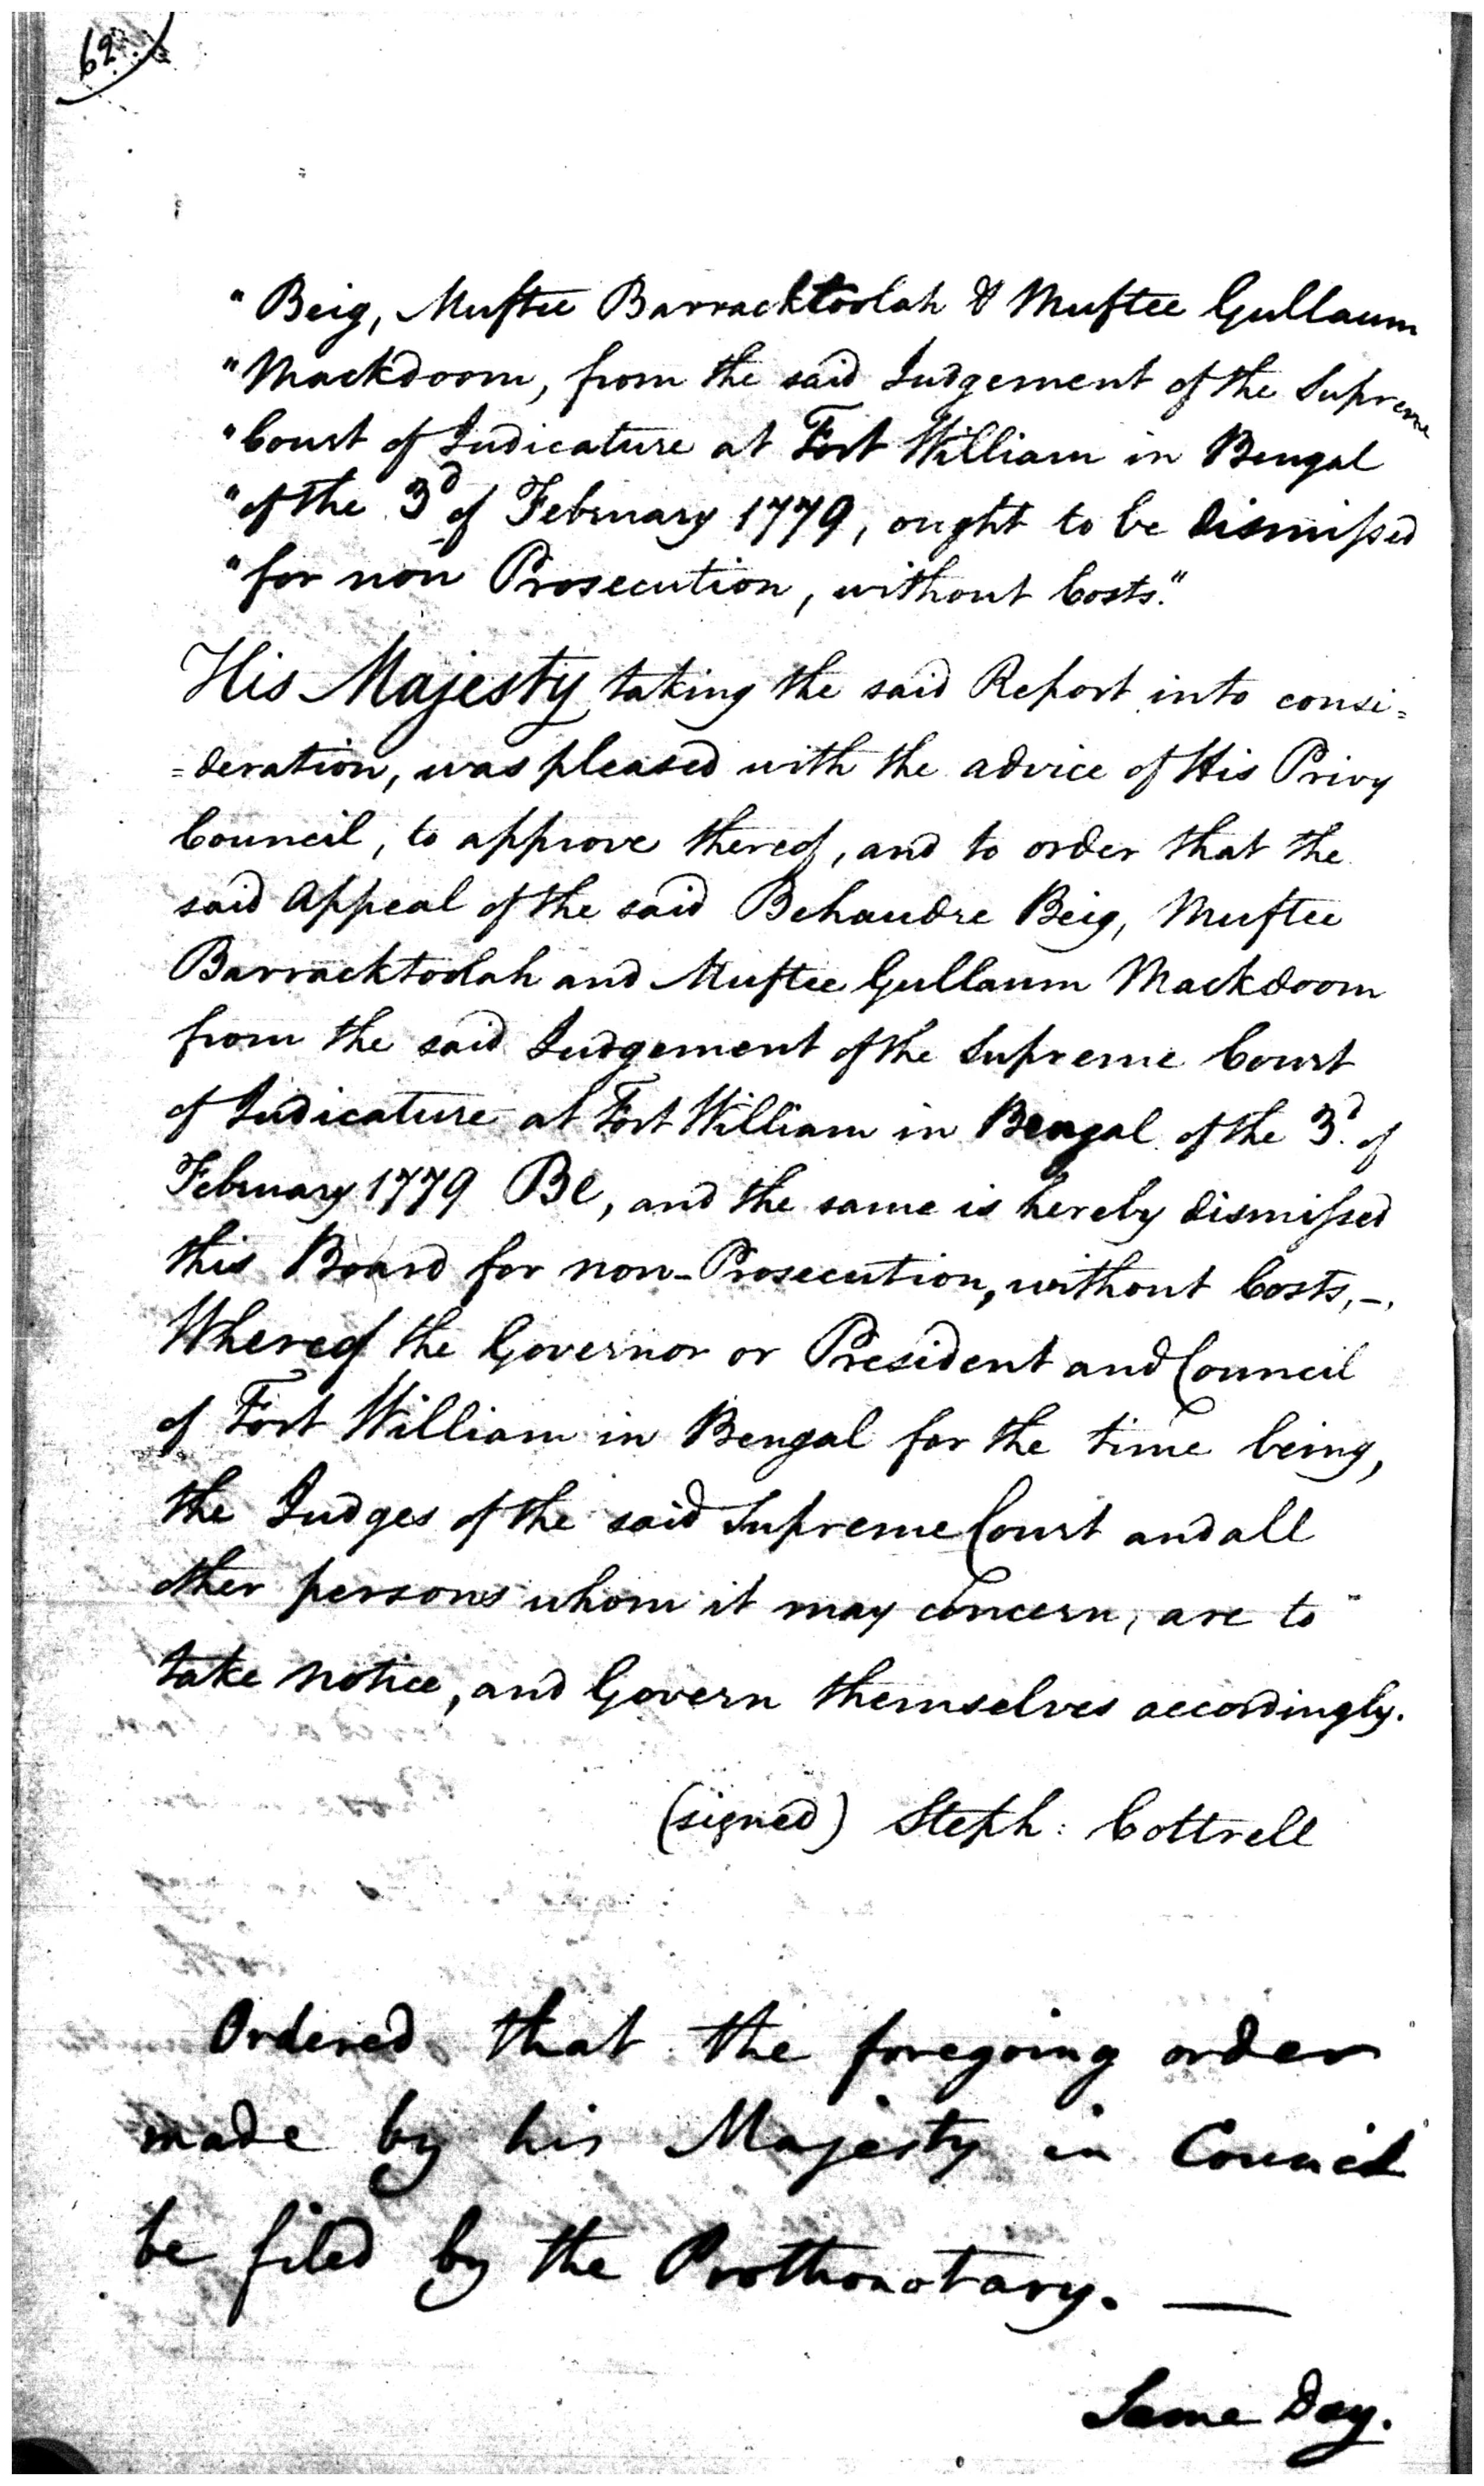 62
"Beig, Muftee Barracktoolah & Muftee Gullaum
"Mackdoom, from the said Judgement of the Supreme
"Court of Judicature at Fort William in Bengal
"of the 3d of February 1779, ought to be dismissed
"for non Prosecution, without Costs."
His Majesty taking the said Report into consi=
=deration, was pleased with the advice of His Privy
Council, to approve thereof, and to order that the
said Appeal of the said Behaudre Beig, Muftee
Barracktoolah and Muftee Gullaum Mackdoom
from the said Judgement of the Supreme Court
of Judicature at Fort William in Bengal of the 3d. of
February 1779 Be, and the same is hereby dismissed
this Board for non-Prosecution, without Costs,-.
Whereof the Governor or President and Council
of Fort William in Bengal for the time being,
the Judges of the said Supreme Court and all
other persons whom it may concern, are to
take notice, and Govern themselves accordingly.
(signed) Steph: Cottrell
Ordered that the foregoing order
made by his Majesty in Council
be filed by the Prothonotary. —
Same Day.